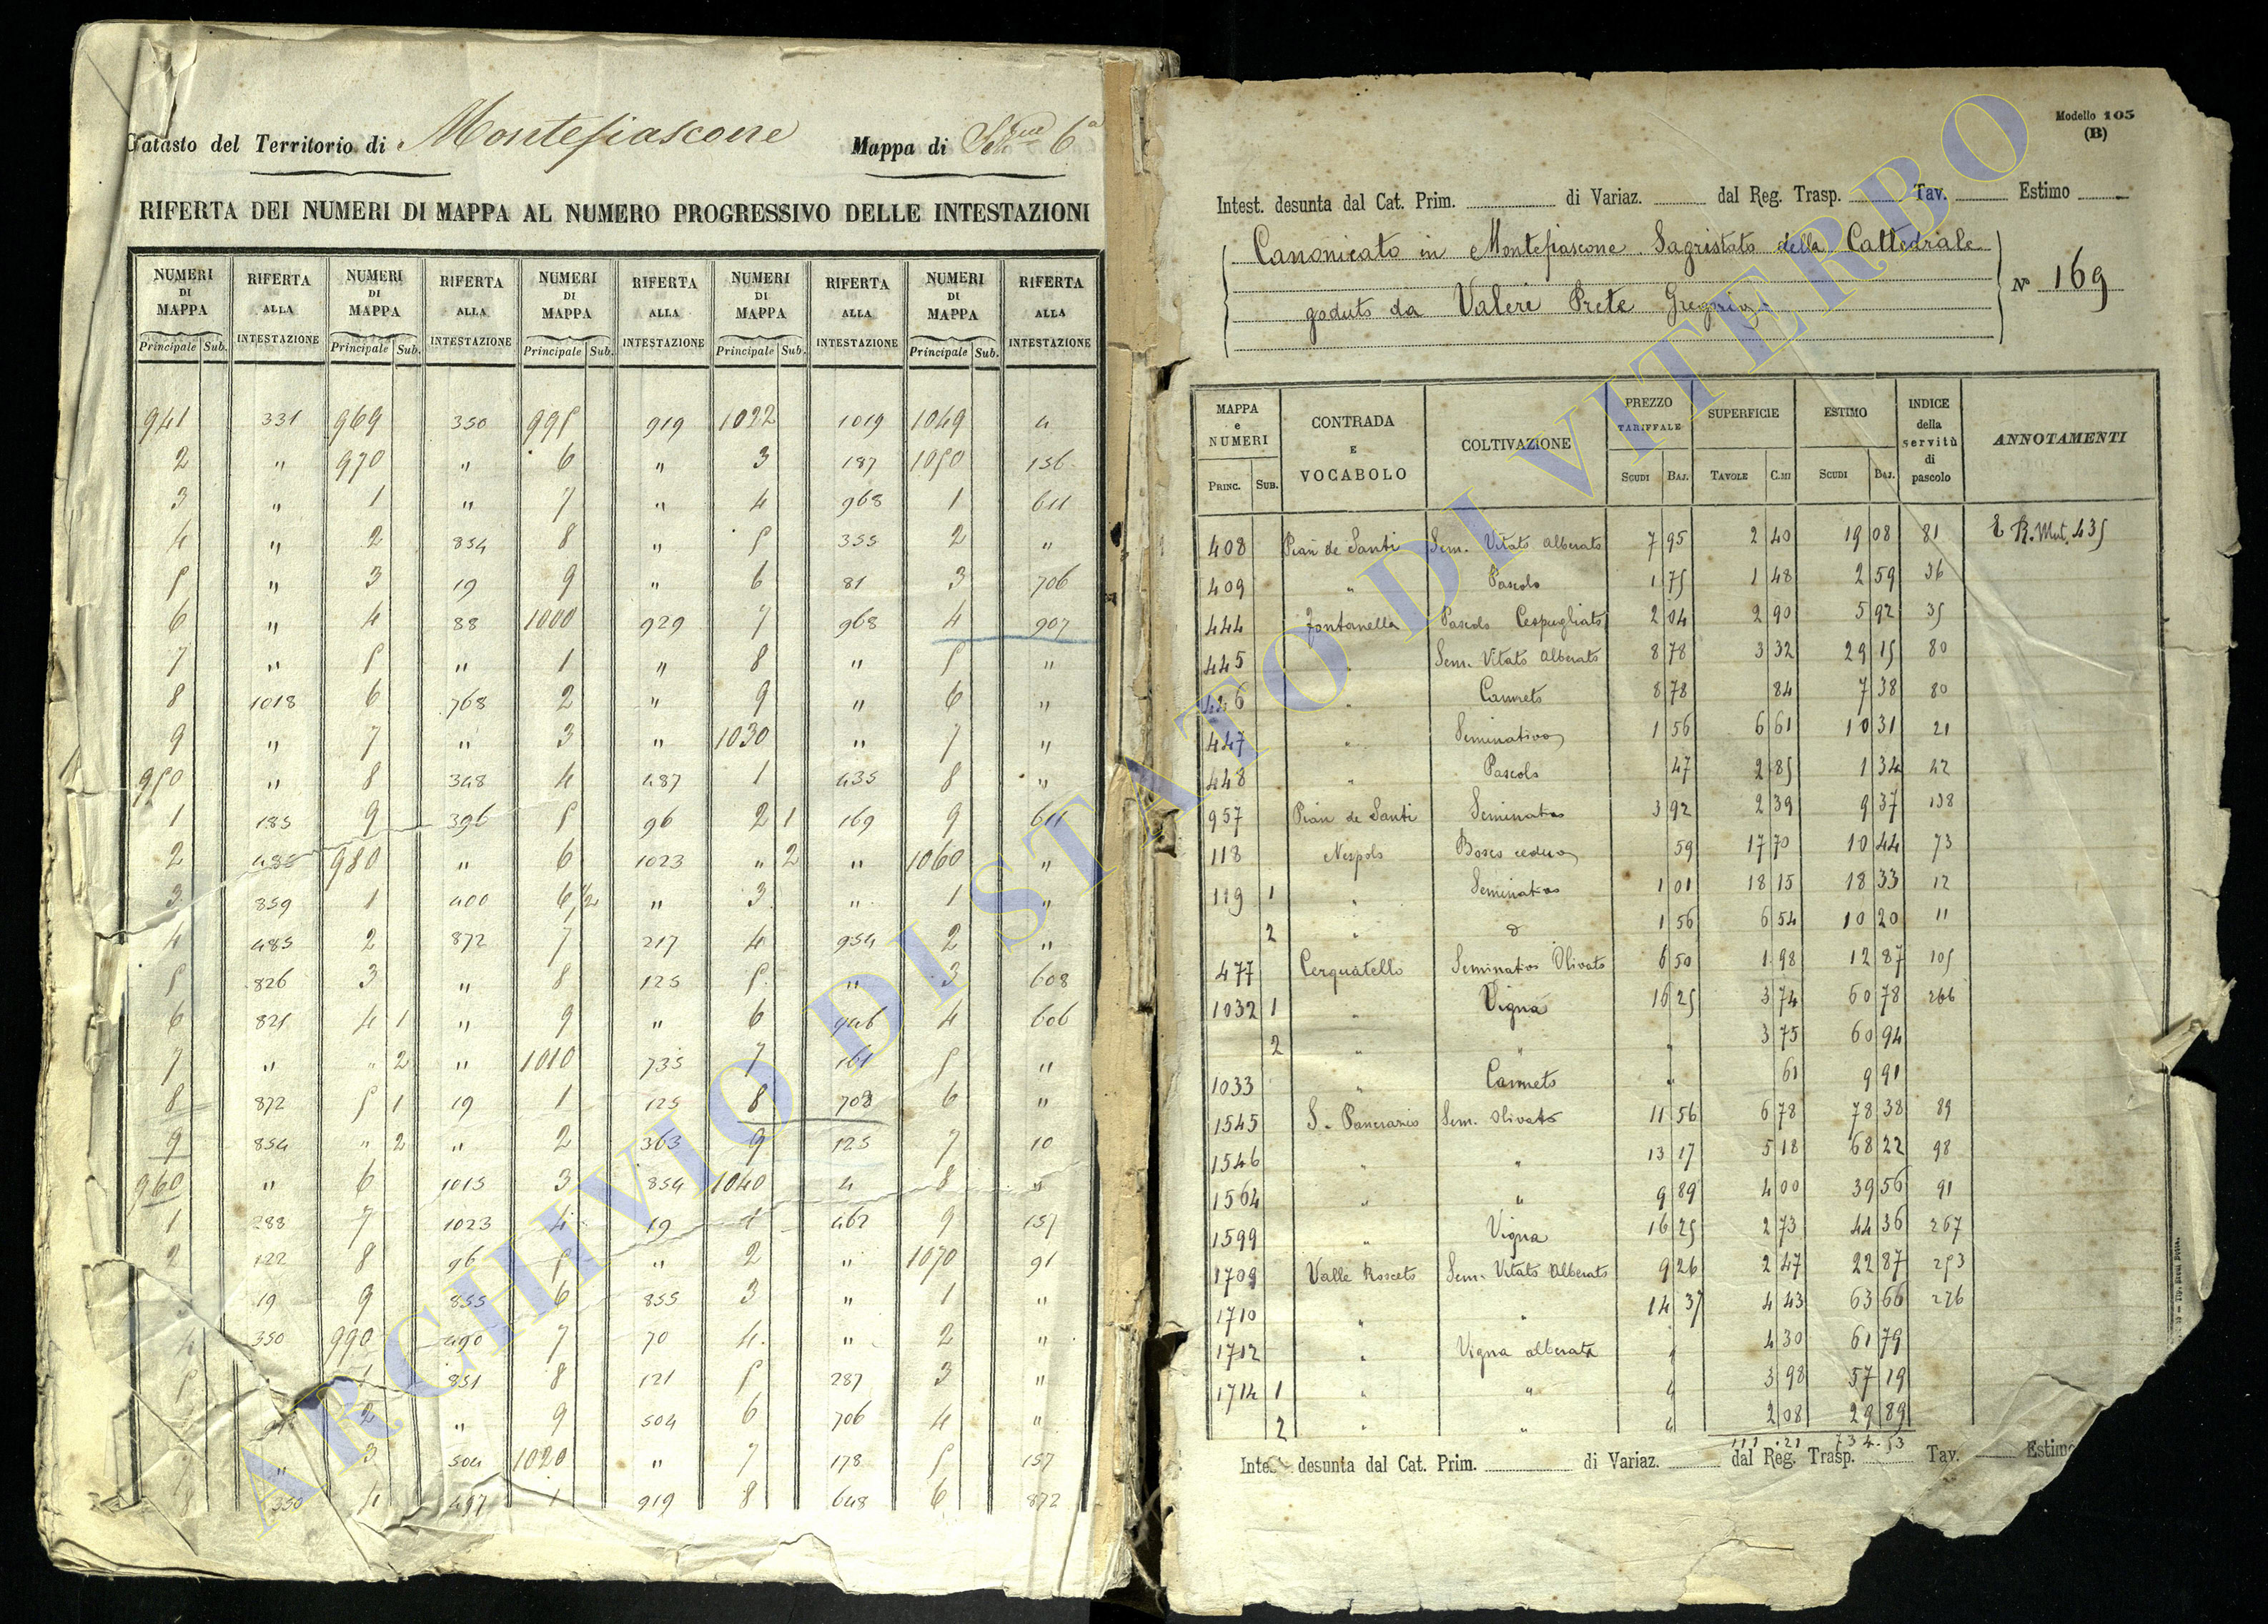 Catasto del Territorio di Montefiascone Mappa di Sez.ne 6a
RIFERTA DEI NUMERI DI MAPPA AL NUMERO PROGRESSIVO DELLE INTESTAZIONI
NUMERI DI MAPPA RIFERTA ALLA INTESTAZIONE NUMERI DI MAPPA RIFERTA ALLA INTESTAZIONE NUMERI DI MAPPA RIFERTA ALLA INTESTAZIONE NUMERI DI MAPPA RIFERTA ALLA INTESTAZIONE NUMERI DI MAPPA RIFERTA ALLA INTESTAZIONE
Principale Sub. Principale Sub. Principale Sub. Principale Sub. Principale Sub.
941 331 969 350 995 919 1022 1019 1049 4
2 " 970 " 6 " 3 187 1050 156
3 " 1 " 7 " 4 968 1 611
4 " 2 854 8 " 5 355 2 "
5 " 3 19 9 " 6 81 3 706
6 " 4 88 1000 929 7 968 4 907
7 " 5 " 1 " 8 " 5 "
8 1018 6 768 2 " 9 " 6 "
9 " 7 " 3 " 1030 " 7 "
950 " 8 348 4 487 1 435 8 "
1 185 9 396 5 96 2 1 169 9 611
2 485 980 " 6 1023 " 2 " 1060 "
3 859 1 400 6 1/2 " 3 " 1 "
4 485 2 872 7 217 4 954 2 "
5 826 3 " 8 125 5 " 3 608
6 821 4 1 " 9 " 6 946 4 606
7 " " 2 " 1010 735 7 161 5 "
8 872 5 1 19 1 125 8 708 6 "
9 854 " 2 " 2 363 9 125 7 10
960 " 6 1015 3 854 1040 4 8 "
1 288 7 1023 4 19 1 462 9 157
2 122 8 96 5 " 2 " 1070 91
19 9 855 6 855 3 " 1 "
4 350 990 490 7 70 4 " 2 "
5 1 851 8 121 5 287 3 "
2 " 9 504 6 706 4 "
" 3 504 1020 " 7 178 5 157
8 350 4 497 1 919 8 648 6 872
Modello 105
(B)
Intest. desunta dal Cat. Prim. di Variaz. dal Reg. Trasp. Tav. Estimo
Canonicato in Montefiascone Sagristato della Cattedrale
goduto da Valeri Prete Gregorio
N° 169
MAPPA e NUMERI CONTRADA E VOCABOLO COLTIVAZIONE PREZZO TARIFFALE SUPERFICIE ESTIMO INDICE della servitù di pascolo ANNOTAMENTI
PRINC. SUB. SCUDI BAJ. TAVOLE C.MI SCUDI BAJ.
408 Pian de Santi Sem. Vitato Alberato 7 95 2 40 19 08 81 E R. Mut. 435
409 " Pascolo 1 75 1 48 2 59 36
444 Fontanella Pascolo Cespugliato 2 04 2 90 5 92 35
445 " Sem. Vitato Alberato 8 78 3 32 29 15 80
446 " Canneto 8 78 84 7 38 80
447 " Seminativo 1 56 6 61 10 31 21
448 " Pascolo 47 2 85 1 34 42
957 Pian de Santi Seminativo 3 92 2 39 9 37 138
118 Nespolo Bosco ceduo 59 17 70 10 44 73
119 1 " Seminativo 1 01 18 15 18 33 12
2 " d 1 56 6 54 10 20 11
477 Cerquatello Seminativo Olivato 6 50 1 98 12 87 105
1032 1 " Vigna 16 25 3 74 60 78 266
2 " " " 3 75 60 94
1033 " Canneto " 61 9 91
1545 S. Pancrazio Sem. Olivato 11 56 6 78 78 38 89
1546 " " 13 17 5 18 68 22 98
1564 " " 9 89 4 00 39 56 91
1599 " Vigna 16 25 2 73 44 36 267
1709 Valle Rosceto Sem. Vitato Alberato 9 26 2 47 22 87 253
1710 " " 14 37 4 43 63 66 276
1712 " Vigna alberata " 4 30 61 79
1714 1 " " " 3 98 57 19
2 " " " 2 08 29 89
111.21 734.53
Intest. desunta dal Cat. Prim. di Variaz. dal Reg. Trasp. Tav. Estimo
ARCHIVIO DI STATO DI VITERBO